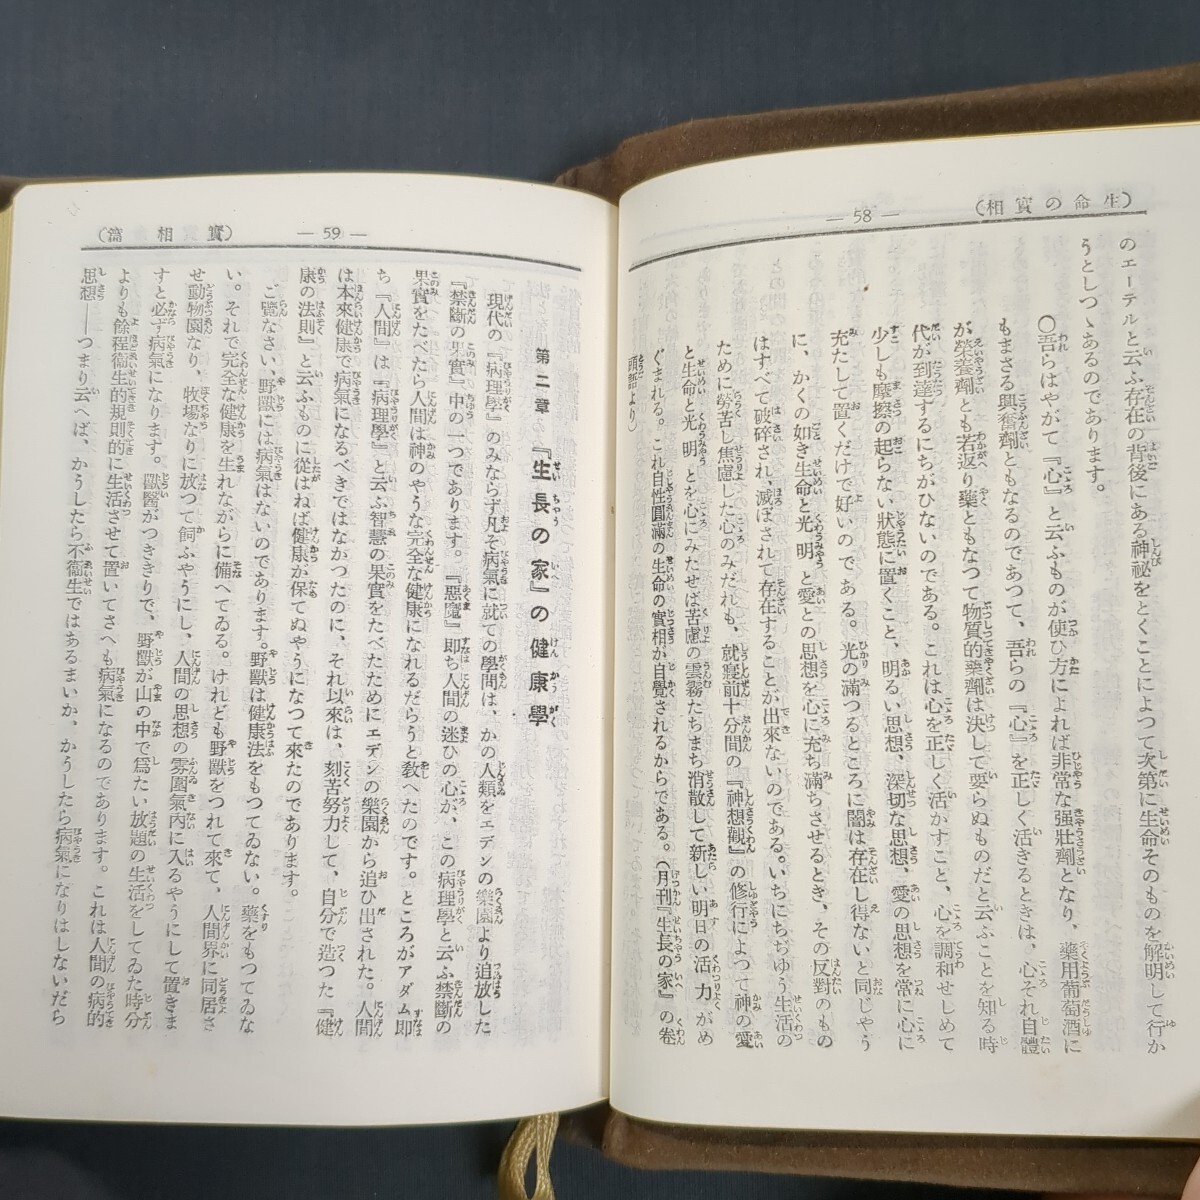 (生命の實相)
— 58 —
のエーテルと云ふ存在の背後にある神祕をとくことによつて次第に生命そのものを解明して行か
うとしつゝあるのであります。
○吾らはやがて『心』と云ふものが使ひ方によれば非常な强壯劑となり、藥用葡萄酒に
もまさる興奮劑ともなるのであつて、吾らの『心』を正しく活きるときは、心それ自體
が榮養劑とも若返り藥ともなつて物質的藥劑は決して要らぬものだと云ふことを知る時
代が到達するにちがひないのである。これは心を正しく活かすこと、心を調和せしめて
少しも摩擦の起らない狀態に置くこと、明るい思想、深切な思想、愛の思想を常に心に
充たして置くだけで好いのである。光の滿つるところに闇は存在し得ないと同じやう
に、かくの如き生命と光明と愛との思想を心に充ち滿ちさせるとき、その反對のもの
はすべて破碎され、滅ぼされて存在することが出來ないのである。いちにちぢゆう生活の
ために勞苦し焦慮した心のみだれも、就寢前十分間の『神想觀』の修行によつて神の愛
と生命と光明とを心にみたせば苦慮の雲霧たちまち消散して新しい明日の活力がめ
ぐまれる。これ自性圓滿の生命の實相が自覺されるからである。(月刊『生長の家』の卷
頭語より)
(實相篇)
— 59 —
第二章 『生長の家』の健康學
現代の『病理學』のみならず凡そ病氣に就ての學問は、かの人類をエデンの樂園より追放した
『禁斷の果實』中の一つであります。『惡魔』即ち人間の迷ひの心が、この病理學と云ふ禁斷の
果實をたべたら人間は神のやうな完全な健康になれるだらうと敎へたのです。ところがアダム即
ち『人間』は『病理學』と云ふ智慧の果實をたべたためにエデンの樂園から追ひ出された。人間
は本來健康で病氣になるべきではなかつたのに、それ以來は、刻苦努力して、自分で造つた『健
康の法則』と云ふものに從はねば健康が保てぬやうになつて來たのであります。
ご覽なさい、野獸には病氣はないのであります。野獸は健康法をもつてゐない。藥をもつてゐな
い。それで完全な健康を生れながらに備へてゐる。けれども野獸をつれて來て、人間界に同居さ
せ動物園なり、牧場なりに放つて飼ふやうにし、人間の思想の雰圍氣內に入るやうにして置きま
すと必ず病氣になります。獸醫がつききりで、野獸が山の中で爲たい放題の生活をしてゐた時分
よりも餘程衞生的規則的に生活させて置いてさへも病氣になるのであります。これは人間の病的
思想——つまり云へば、かうしたら不衞生ではあるまいか、かうしたら病氣になりはしないだら